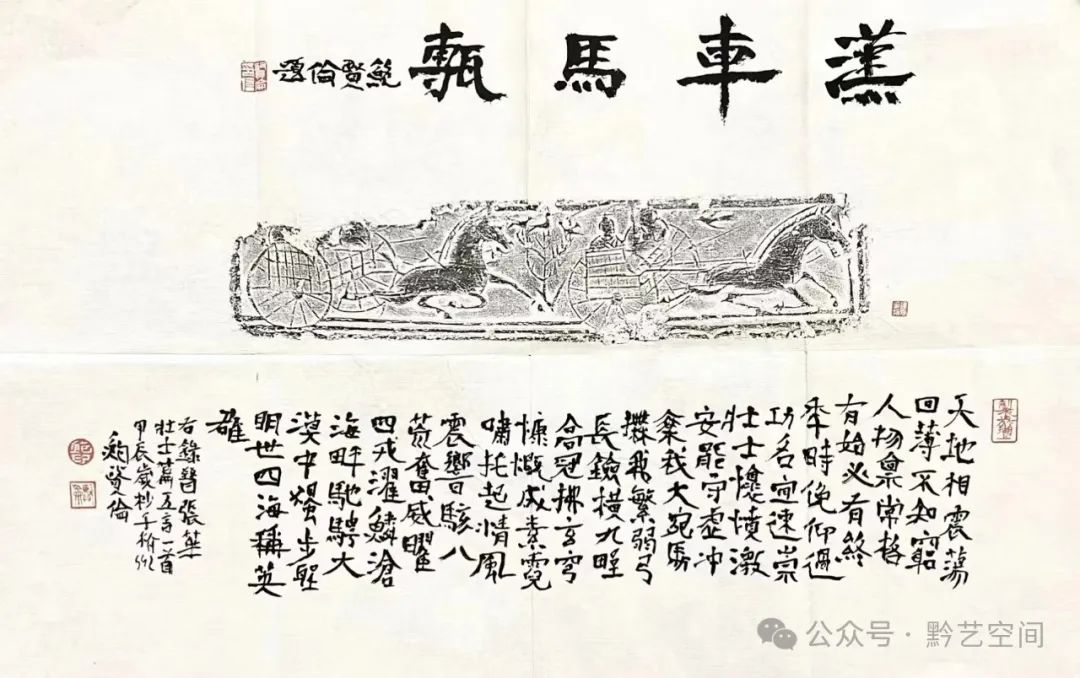 漢車馬甎
鮑賢倫題
天地相震蕩
回薄不知窮
人物稟常格
有始必有終
年時俛仰過
功名宜速崇
壯士懷憤激
安能守虛沖
乘我大宛馬
撫我繁弱弓
長劍橫九野
高冠拂玄穹
慷慨成素霓
嘯吒起清風
震響駭八
荒奮威曜
四戎濯鱗滄
海畔馳騁大
漠中獨步聖
明世四海稱英
雄
右錄晉張華
壯士篇五言一首
甲辰歲杪于杭州
鮑賢倫
公众号·黔艺空间